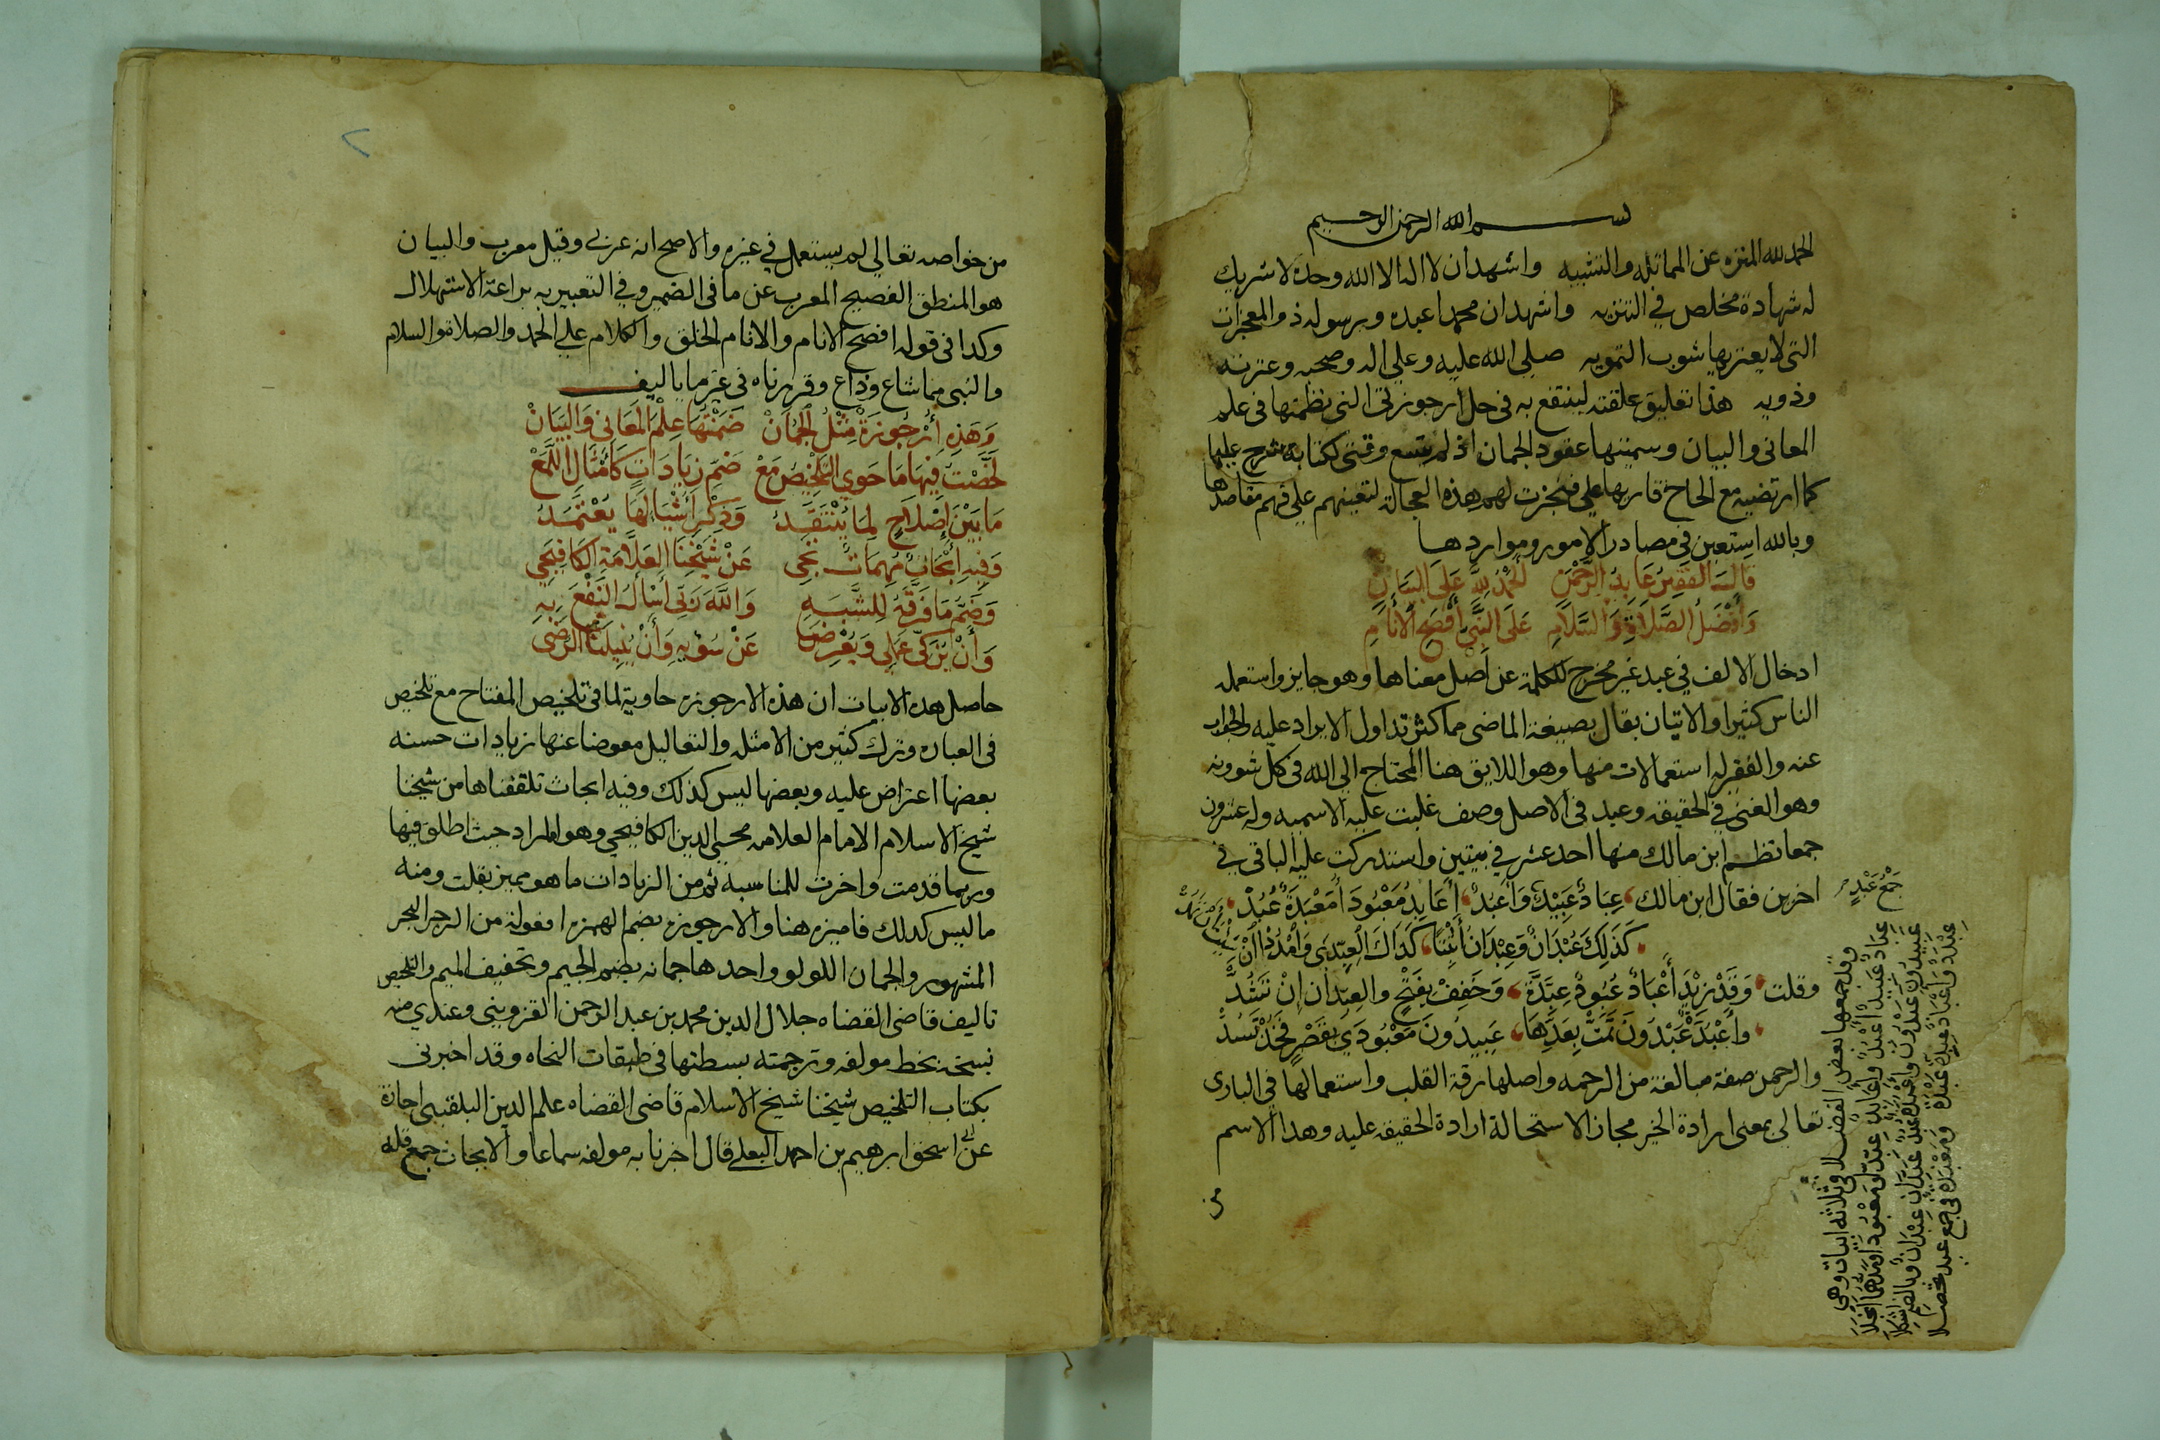 بســـم الله الرحمن الرحيم
الحمد لله المنزه عن المماثله والتشبيه واشهد ان لا اله الا الله وحده لا شريك
له شهادة مخلص في التنزيه واشهد ان محمدا عبده ورسوله ذو المعجزات
التي لا يعتريها شوب التمويه صلى الله عليه وعلي اله وصحبه وعترته
وذويه هذا تعليق علقته لينتفع به في حل ارجوزتي التي نظمتها في علم
المعاني والبيان وسميتها عقود الجمان اذ لم يتسع وقتي لكتابة شرح عليها
كما ارتضيه مع الحاح قاريها علي فنجزت لهم هذه العجالة لتعينهم علي فهم مقاصدها
وبالله استعين في مصادر الامور ومواردها
قَالَ الفَقِيرُ عَابِدُ الرَّحْمٰنِ الحَمْدُ لِلَّهِ عَلَى البَيَانِ
وَأَفْضَلُ الصَّلَاةِ وَالسَّلَامِ عَلَى النَّبِي أَفْصَحِ الأَنَامِ
ادخال الالف في عبد غير مخرج للكلمة عن اصل معناها وهو جايز واستعمله
الناس كثيرا والاتيان بقال بصيغة الماضي مما كثر تداول الايراد عليه والجواب
عنه والفقر له استعمالات منها وهو اللايق هنا المحتاج الي الله في كل شوونه
وهو الغني في الحقيقه وعبد في الاصل وصف غلبت عليه الاسميه وله عشرون
جمعا نظم ابن مالك منها احد عشر في بيتين واستدركت عليه الباقي في
اخرين فقال ابن مالك عِبَادٌ عَبِيدٌ وَأَعْبُدٌ أَعَابِدُ مَعْبُودَا مَعْبَدَةٌ عُبُدْ
كَذَلِكَ عُبْدَانٌ وَعِبْدَانٌ أَثْبِتَا كَذَاكَ العِبِدَّى وَامْدُدْ انْ
وقلت وَقَدْ زِيْدَ أَعْبَادٌ عُبُودٌ عِبَّدَةٌ وَخَفِفْ بِفَتْحٍ والعِبَّدَانِ إِنْ تَشُدّْ
وأَعْبِدَةٌ عَبْدُونَ ثَمَّتَ بِعَدِّهَا عَبِيدُونَ مَعْبُودَى بِقَصْرٍ فَخُذْ تَسُدْ
والرحمن صفة مبالغة من الرحمه واصلها رقة القلب واستعمالها في البارى
تعالى بمعنى ارادة الخير مجاز لاستحالة ارادة الحقيقه عليه وهذا الاسم
من
جَمْعُ عَبْدٍ
وقد جمعها بعض الفضلا في ثلاثة ابيات وهي
من خواصه تعالى لم يستعمل في غيره والاصح انه عربي وقيل معرب والبيان
هو المنطق الفصيح المعرب عن ما في الضمير وفي التعبير به براعة الاستهلال
وكذا في قوله افصح الانام والانام الخلق والكلام علي الحمد والصلاة والسلام
والنبي مما شاع وذاع وقررناه في غير ما تاليف
وَهَذِهِ أُرْجُوزَةٌ مِثْلُ الجُمَانْ ضَمَّنْتُهَا عِلْمَ المَعَانِي وَالبَيَانْ
لَخَّصْتُ فِيهَا مَا حَوَى التَّلْخِيصُ مَعْ ضَمِّ زِيَادَاتٍ كَأَمْثَالِ اللُّمَعْ
مَا بَيْنَ إِصْلَاحٍ لِمَا يُنْتَقَدُ وَذِكْرِ أَشْيَا لَهَا يُعْتَمَدُ
وَفِيهِ أَبْحَاثٌ مُهِمَّاتٌ تَجِي عَنْ شَيْخِنَا العَلَّامَةِ الكَافِيَجِي
وَضَمُّ مَا فَرَّقَهُ لِلشَّبَهِ وَاللَّهَ رَبِّي أَسْأَلُ النَّفْعَ بِهِ
وَأَنْ يُزَكِّيَ عَمَلِي وَيُعْرِضَا عَنْ سُوئِهِ وَأَنْ يُنِيلَنَا الرِّضَى
حاصل هذه الابيات ان هذه الارجوزه حاوية لما في تلخيص المفتاح مع تلخيص
في العباره وترك كثير من الامثله والتعاليل معوضا عنها زيادات حسنه
بعضها اعتراض عليه وبعضها ليس كذلك وفيه ابحاث تلقفناها من شيخنا
شيخ الاسلام الامام العلامه محيي الدين الكافيجي وهو المراد حيث اطلق فيها
وربما قدمت واخرت للمناسبه ثم من الزيادات ما هو مميز بقلت ومنه
ما ليس كذلك فاميزه هنا والارجوزه بضم الهمزه افعولة من الرجز البحر
المشهور والجمان اللولو واحدها جمانه بضم الجيم وتخفيف الميم والتلخيص
تاليف قاضي القضاه جلال الدين محمد بن عبد الرحمن القزويني وعندي منه
نسخة بخط مولفه وترجمته بسطتها في طبقات النحاه وقد اخبرني
بكتاب التلخيص شيخنا شيخ الاسلام قاضي القضاه علم الدين البلقيني اجازة
عن ابي اسحق ابرهيم بن احمد البعلي قال اخبرنا به مولفه سماعا والابحاث جمع قله